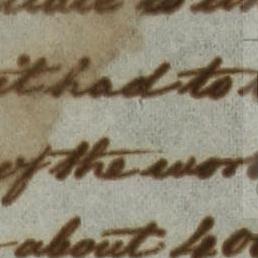 it had to
of the wor
about 400